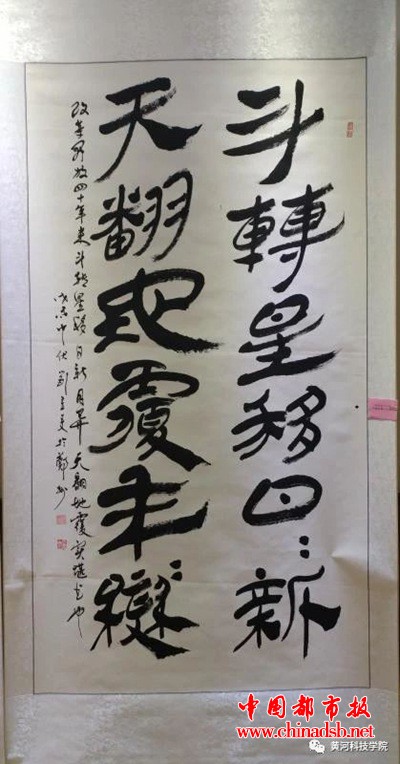 斗轉星移日:新
天翻地覆年:變
改革開放四十年来斗轉星移日新月異天翻地覆也
戊戌中伏劉於鄭州
中国都市报
www.chinadsb.net
黄河科技学院